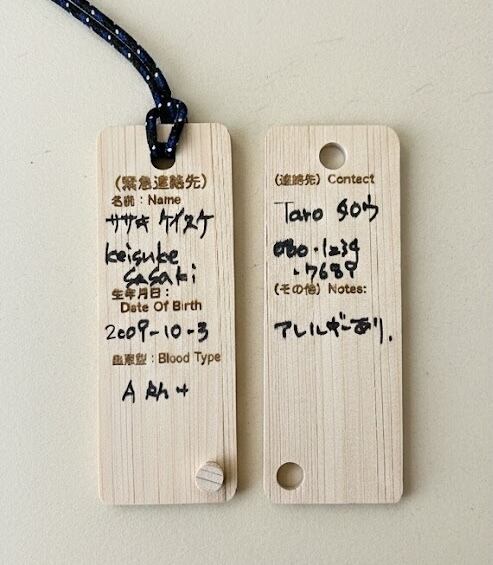 （緊急連絡先）
名前：Name
ササキ ケイスケ
Keisuke
Sasaki
生年月日：
Date Of Birth
2009-10-3
血液型：Blood Type
A Rh+
（連絡先）Contact
Taro タロウ
080・1234
・7689
（その他）Notes:
アレルギーあり.